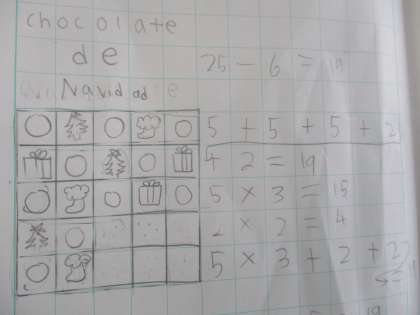 chocolate
de
Navidad
25 - 6 = 19
5 + 5 + 5 + 2
+ 2 = 19
5 × 3 = 15
2 × 2 = 4
5 × 3 + 2 + 2